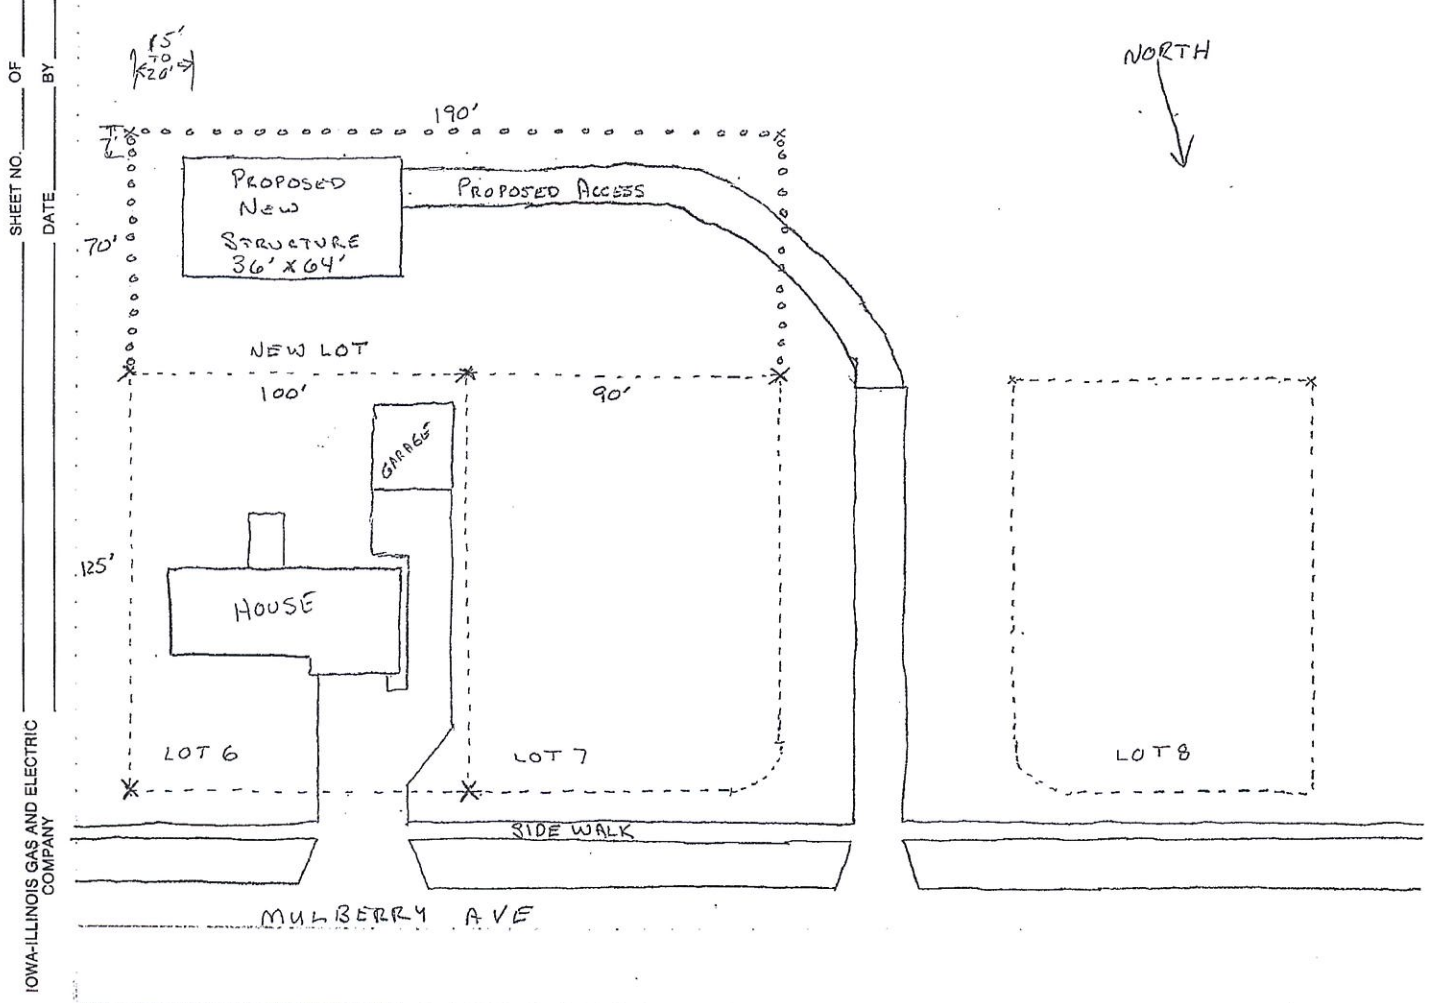 SHEET NO. ____ OF ____
DATE ____ BY ____
IOWA-ILLINOIS GAS AND ELECTRIC
COMPANY
15'
TO
20'
NORTH
190'
7'
PROPOSED
NEW
STRUCTURE
36' X 64'
PROPOSED ACCESS
70'
NEW LOT
100'
90'
GARAGE
125'
HOUSE
LOT 6
LOT 7
LOT 8
SIDE WALK
MULBERRY AVE